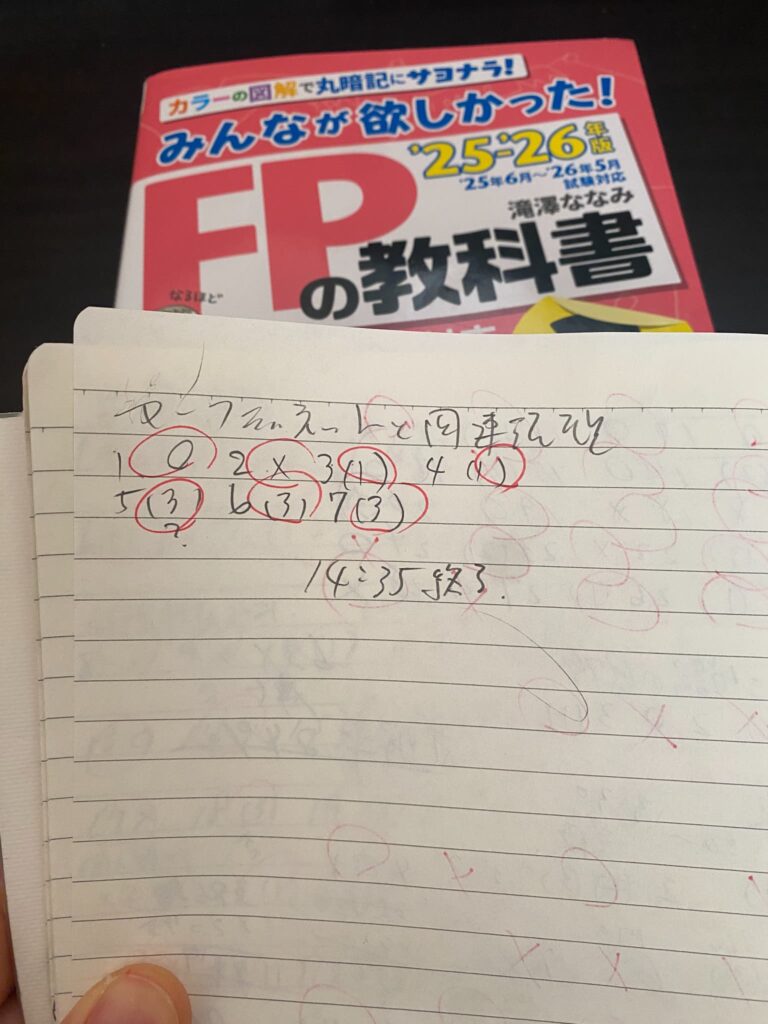 カラーの図解で丸暗記にサヨナラ!
みんなが欲しかった!
'25-'26年版
'25年6月~'26年5月
試験対応
滝澤ななみ
FPの教科書
なるほど
セーフティネットと関連法規
1 ○ 2 × 3 (1) 4 (1)
5 (3) 6 (3) 7 (3)
?
14:35 終了.